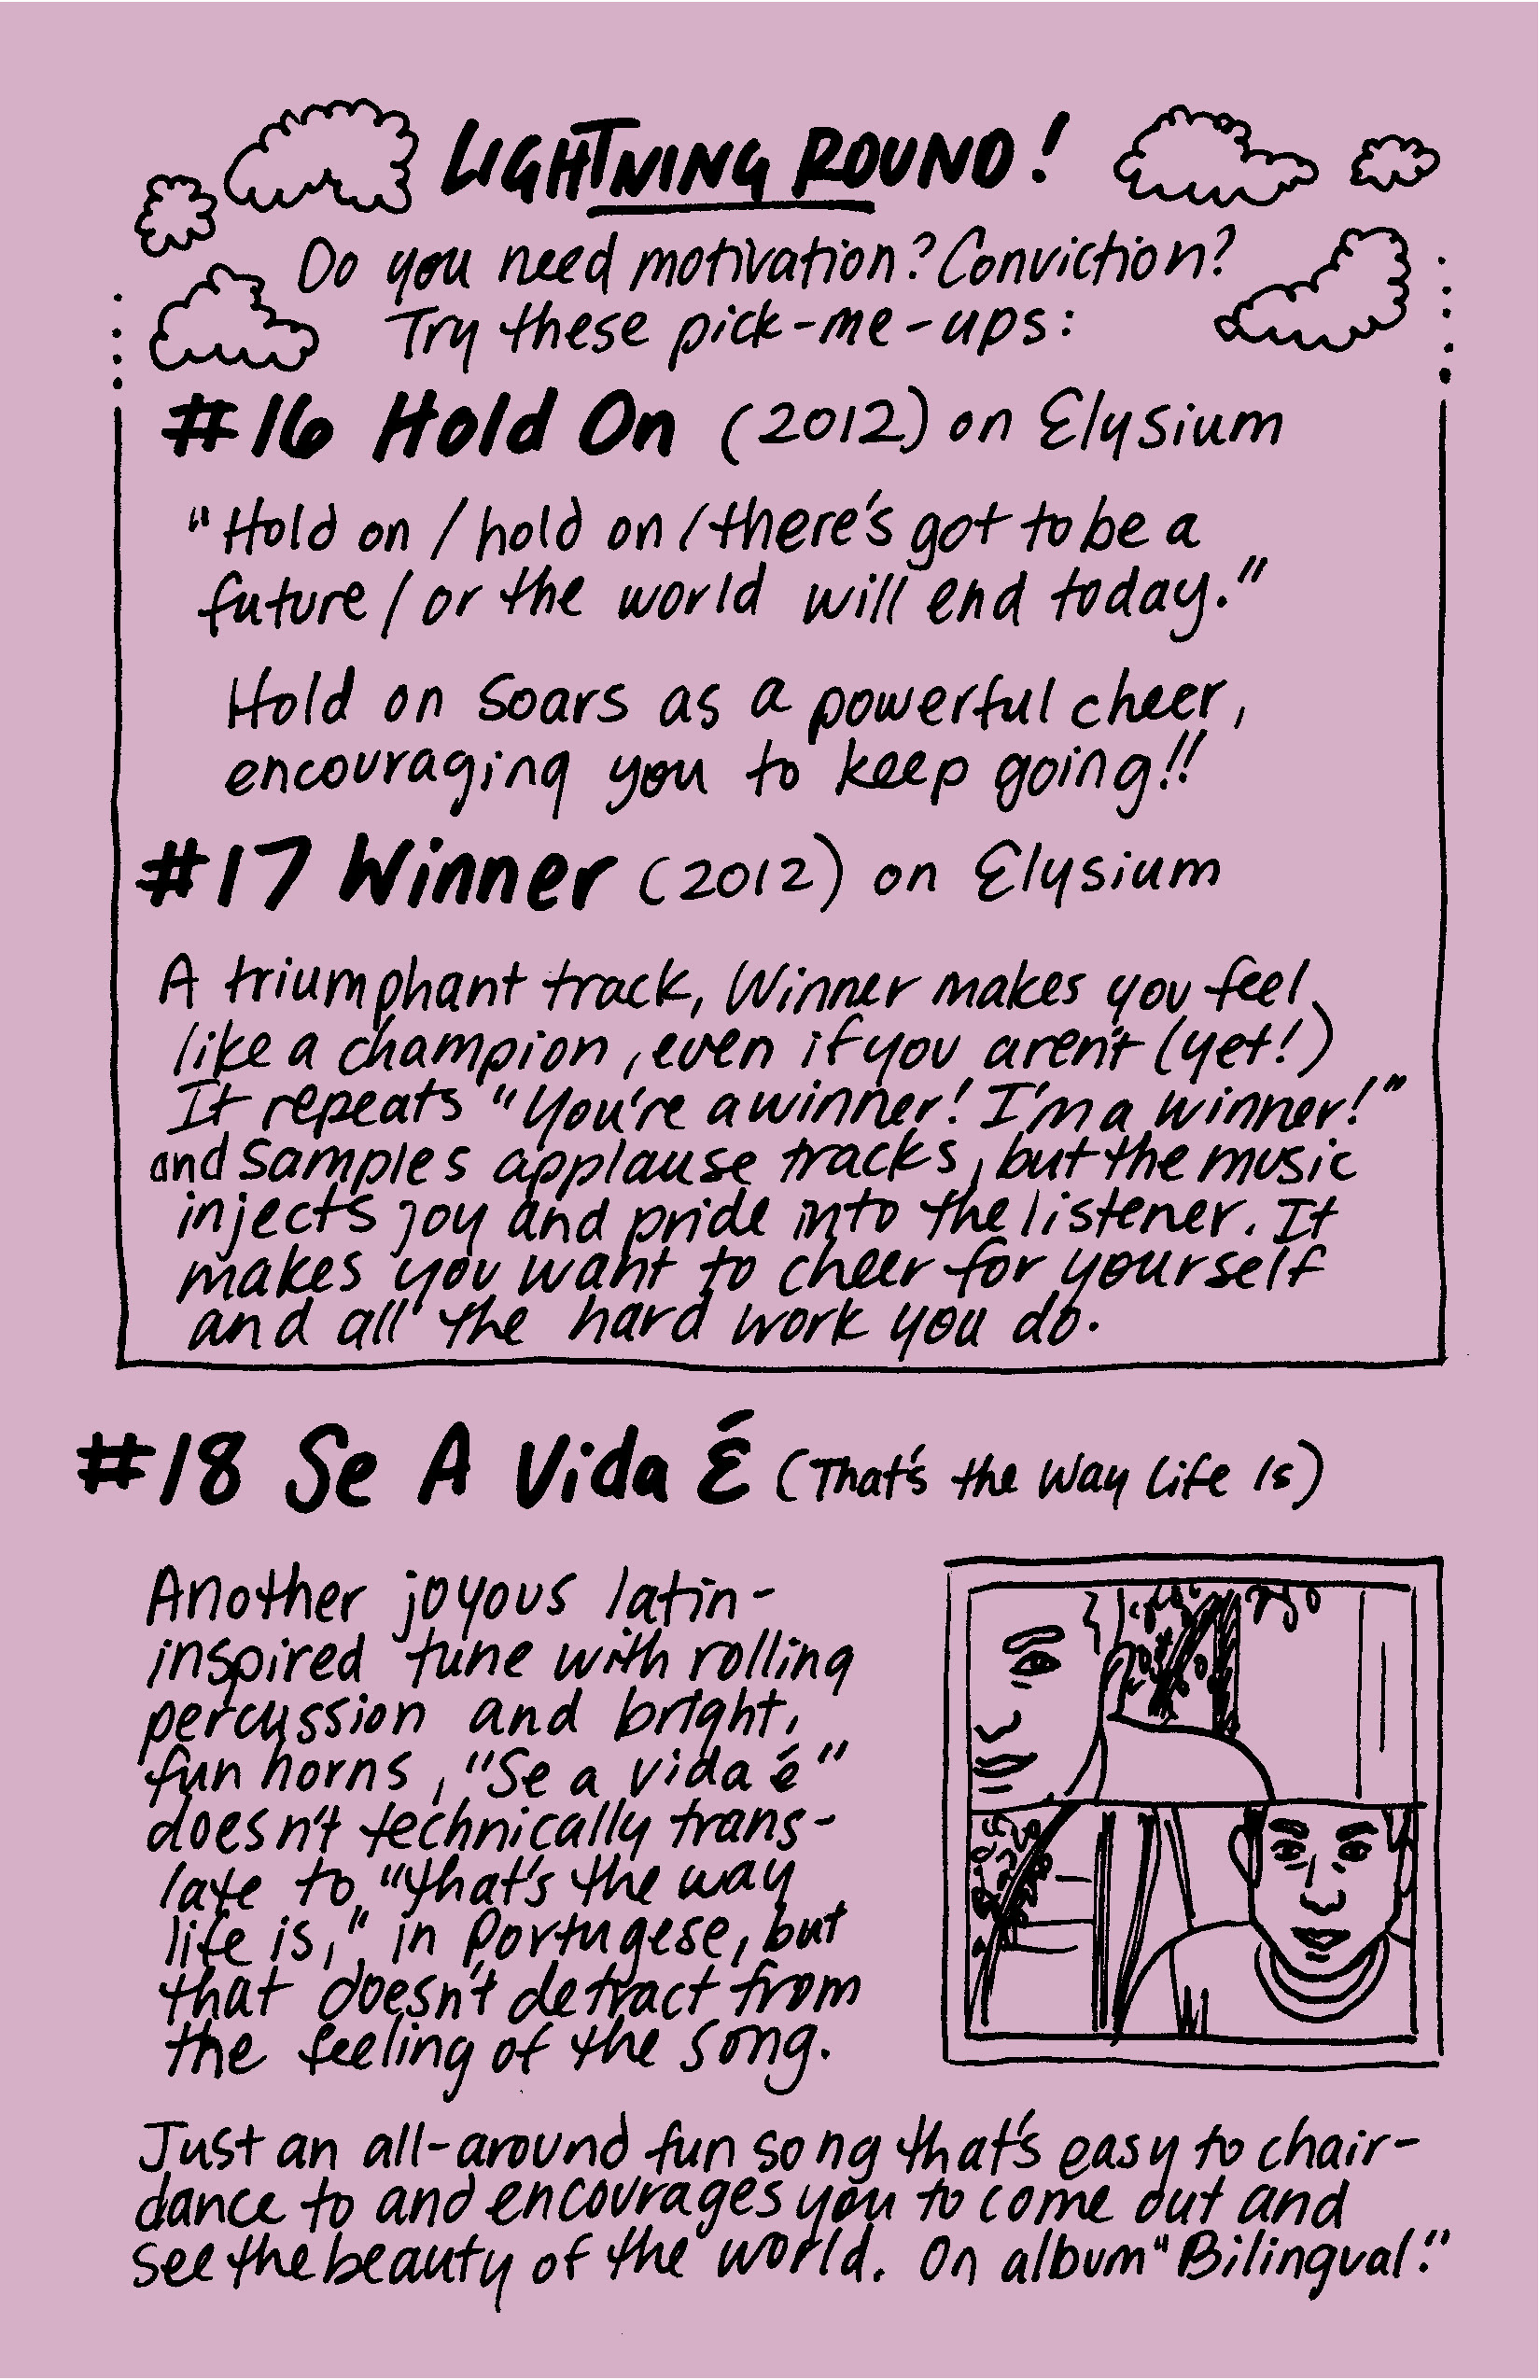 LIGHTNING ROUND!
Do you need motivation? Conviction?
Try these pick-me-ups:
#16 Hold On (2012) on Elysium
"Hold on / hold on / there's got to be a
future / or the world will end today."
Hold on soars as a powerful cheer,
encouraging you to keep going!!
#17 Winner (2012) on Elysium
A triumphant track, Winner makes you feel
like a champion, even if you aren't (yet!)
It repeats "You're a winner! I'm a winner!"
and samples applause tracks, but the music
injects joy and pride into the listener. It
makes you want to cheer for yourself
and all the hard work you do.
#18 Se A Vida É (That's the Way Life Is)
Another joyous latin-
inspired tune with rolling
percussion and bright,
fun horns, "Se a vida é"
doesn't technically trans-
late to "that's the way
life is," in Portugese, but
that doesn't detract from
the feeling of the song.
Just an all-around fun song that's easy to chair-
dance to and encourages you to come out and
see the beauty of the world. On album "Bilingual."